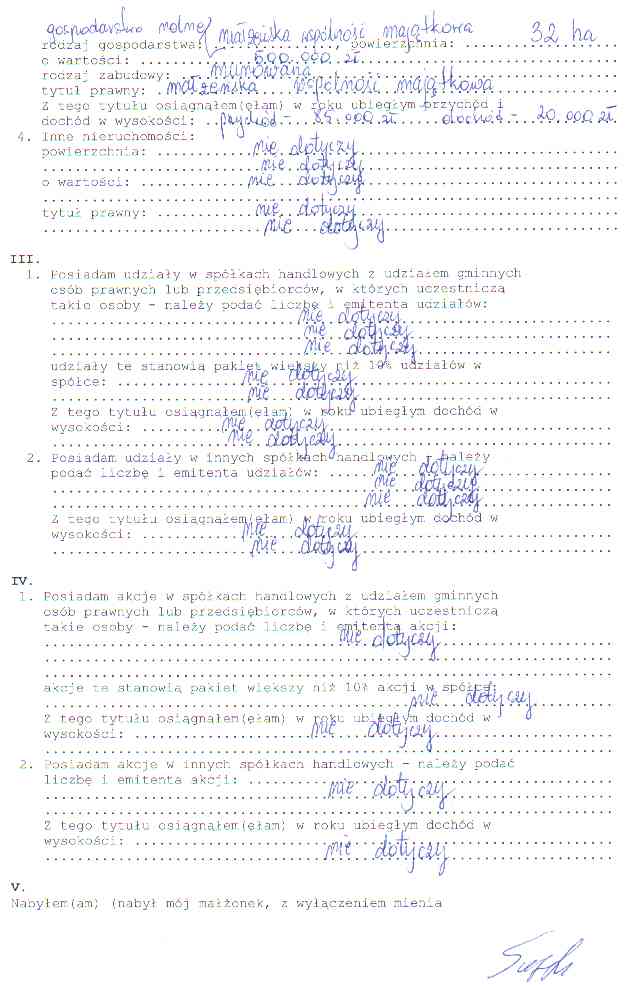 gospodarstwo rolne, małżeńska wspólność majątkowa 32 ha
rodzaj gospodarstwa: ..............., powierzchnia: ...............
o wartości: ............... 500.000 zł ...............
rodzaj zabudowy: ... murowana ...............
tytuł prawny: ... małżeńska wspólność majątkowa ...............
Z tego tytułu osiągnąłem(ęłam) w roku ubiegłym przychód i
dochód w wysokości: .. przychód - 85.000 zł dochód - 20.000 zł
4. Inne nieruchomości:
powierzchnia: ............... nie dotyczy ...............
............... nie dotyczy ...............
o wartości: ............... nie dotyczy ...............
...............
tytuł prawny: ............... nie dotyczy ...............
............... nie dotyczy ...............
III.
1. Posiadam udziały w spółkach handlowych z udziałem gminnych
osób prawnych lub przedsiębiorców, w których uczestniczą
takie osoby - należy podać liczbę i emitenta udziałów:
............... nie dotyczy ...............
............... nie dotyczy ...............
............... nie dotyczy ...............
udziały te stanowią pakiet większy niż 10% udziałów w
spółce: ............... nie dotyczy ...............
............... nie dotyczy ...............
Z tego tytułu osiągnąłem(ęłam) w roku ubiegłym dochód w
wysokości: ............... nie dotyczy ...............
............... nie dotyczy ...............
2. Posiadam udziały w innych spółkach handlowych - należy
podać liczbę i emitenta udziałów: ............... nie dotyczy ...............
............... nie dotyczy ...............
............... nie dotyczy ...............
Z tego tytułu osiągnąłem(ęłam) w roku ubiegłym dochód w
wysokości: ............... nie dotyczy ...............
............... nie dotyczy ...............
IV.
1. Posiadam akcje w spółkach handlowych z udziałem gminnych
osób prawnych lub przedsiębiorców, w których uczestniczą
takie osoby - należy podać liczbę i emitenta akcji:
............... nie dotyczy ...............
...............
...............
akcje te stanowią pakiet większy niż 10% akcji w spółce:
............... nie dotyczy ...............
Z tego tytułu osiągnąłem(ęłam) w roku ubiegłym dochód w
wysokości: ............... nie dotyczy ...............
...............
2. Posiadam akcje w innych spółkach handlowych - należy podać
liczbę i emitenta akcji: ...............
............... nie dotyczy ...............
...............
Z tego tytułu osiągnąłem(ęłam) w roku ubiegłym dochód w
wysokości: ...............
............... nie dotyczy ...............
V.
Nabyłem(am) (nabył mój małżonek, z wyłączeniem mienia